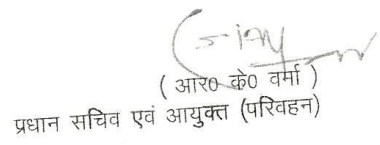 ( आर० के० वर्मा )
प्रधान सचिव एवं आयुक्त (परिवहन)